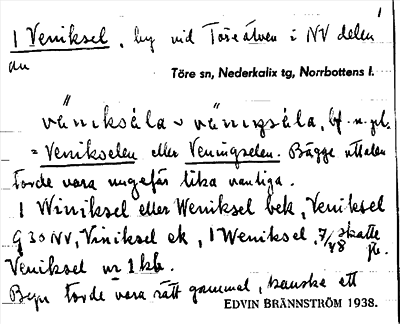 1 Veniksel, by vid Töreälven i NV delen
au
Töre sn, Nederkalix tg, Norrbottens l.
väniksəla ~ väningsəla, bf. n. pl.
= Venikselen eller Veningselen. Bägge uttalen
torde vara ungefär lika vanliga.
1 Winiksel eller Weniksel bek, Veniksel
G 30 NV, Viniksel ek, 1 Weniksel, 7/48 skatte
Veniksel nr 1 kb.
Byn torde vara rätt gammal, kanske ett
EDVIN BRÄNNSTRÖM 1938.